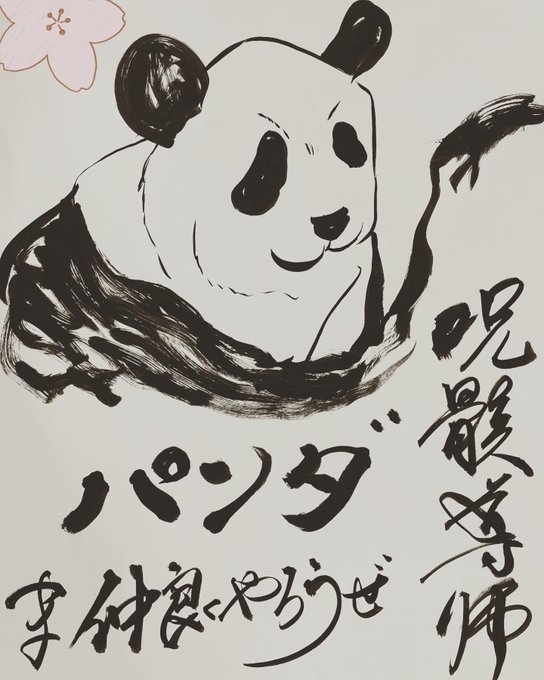 パンダ
ま 仲良くやろうぜ
呪骸導師